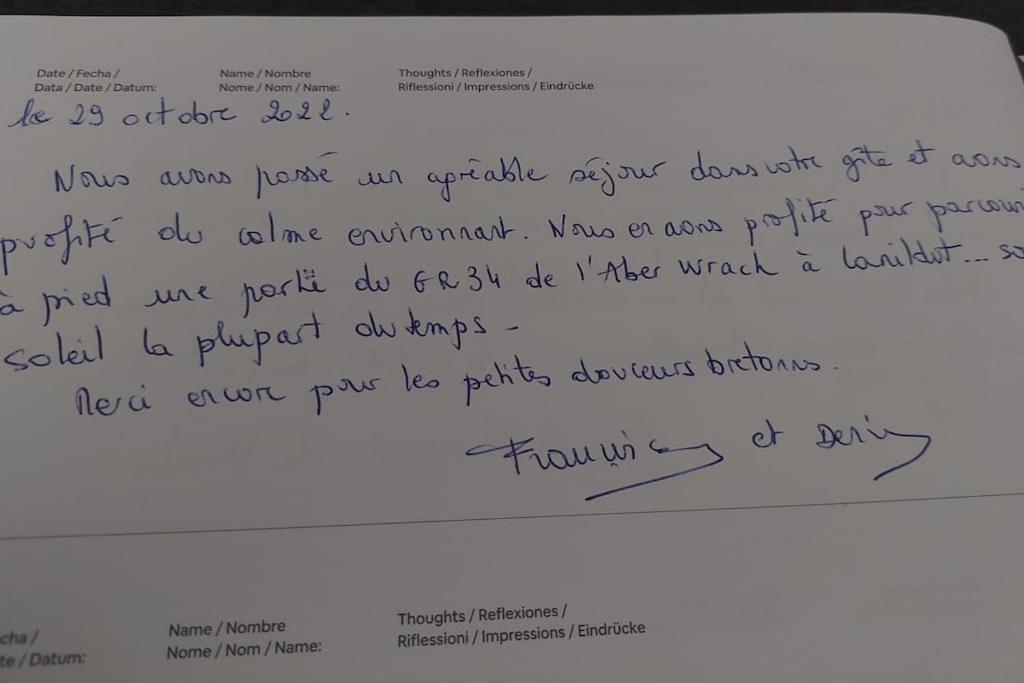 Date / Fecha /
Data / Date / Datum:
Name / Nombre
Nome / Nom / Name:
Thoughts / Reflexiones /
Riflessioni / Impressions / Eindrücke
le 29 octobre 2022.
Nous avons passé un agréable séjour dans votre gîte et avons
profité du calme environnant. Nous en avons profité pour parcourir
à pied une partie du GR34 de l'Aber Wrach à Lanildut...
soleil la plupart du temps -
Merci encore pour les petites douceurs bretonnes.
et Denis
cha /
te / Datum:
Name / Nombre
Nome / Nom / Name:
Thoughts / Reflexiones /
Riflessioni / Impressions / Eindrücke